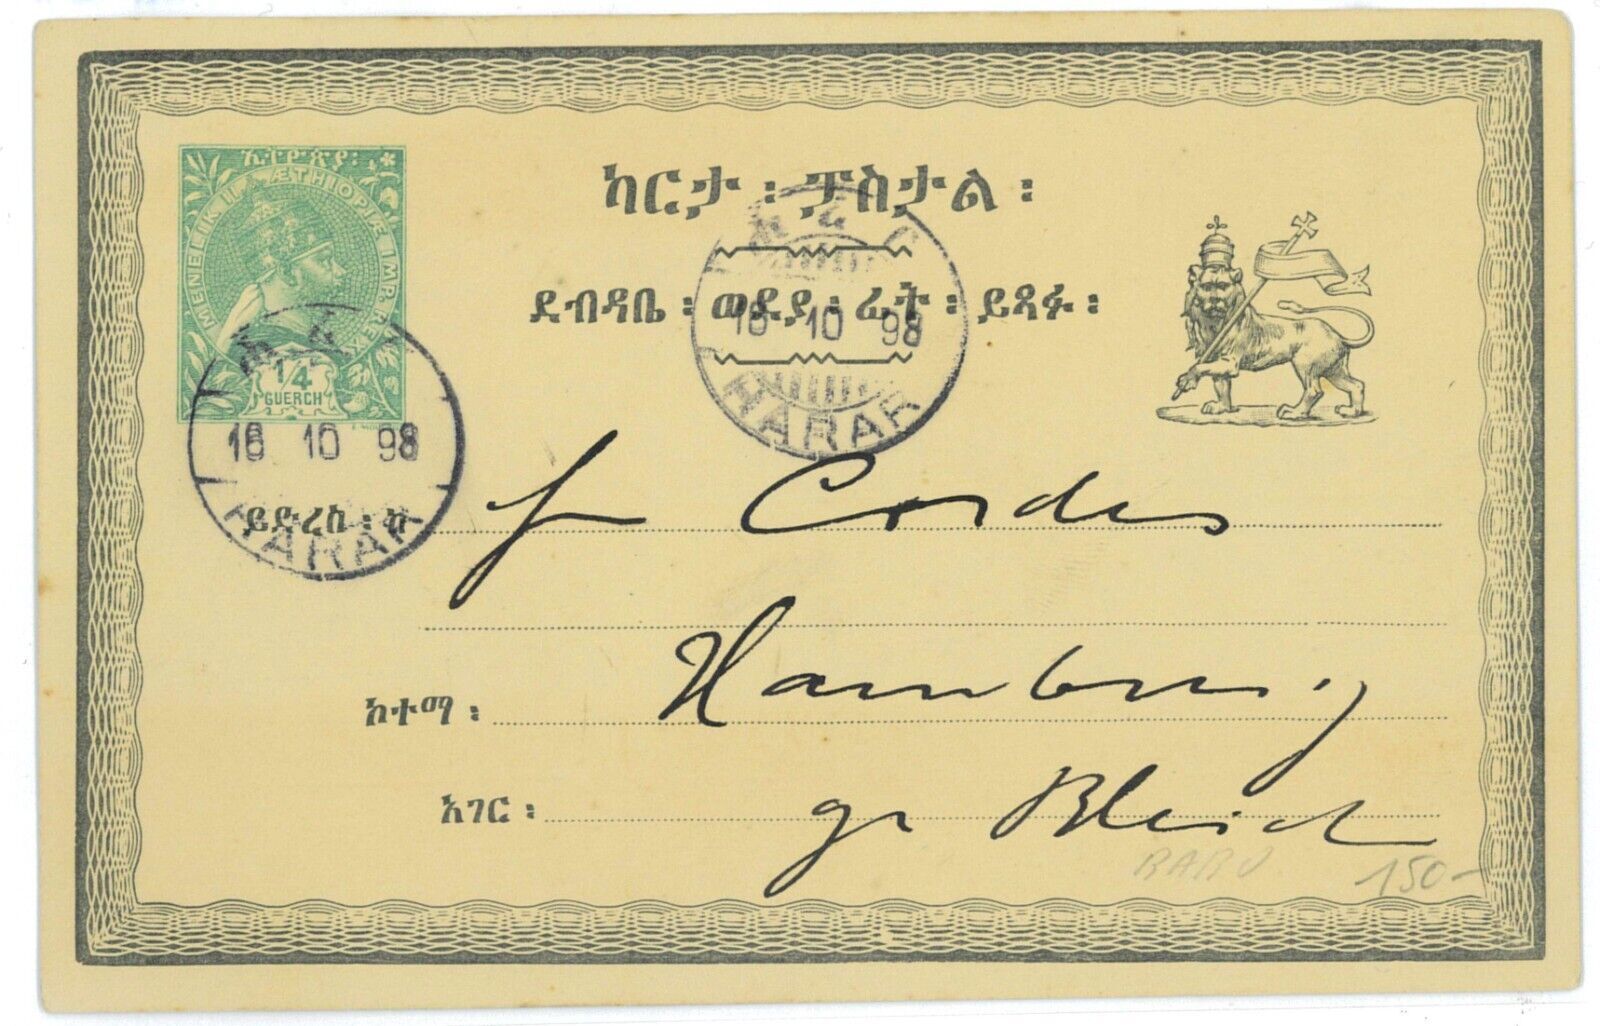 ኢትዮጵያ፡
MENELIK II ÆTHIOPIÆ IMP. REX
1/4
GUERCH
ካርታ፡ ፓስታል፡
ደብዳቤ፡ ወዲያ፡ ፊት፡ ይጻፉ፡
ሐረር
16 10 98
HARAR
ሐረ
16 10 98
HARAR
ይድረስ፡ ከ
Cordes
ከተማ፡
Hamburg
አገር፡
gr Bleich
150-